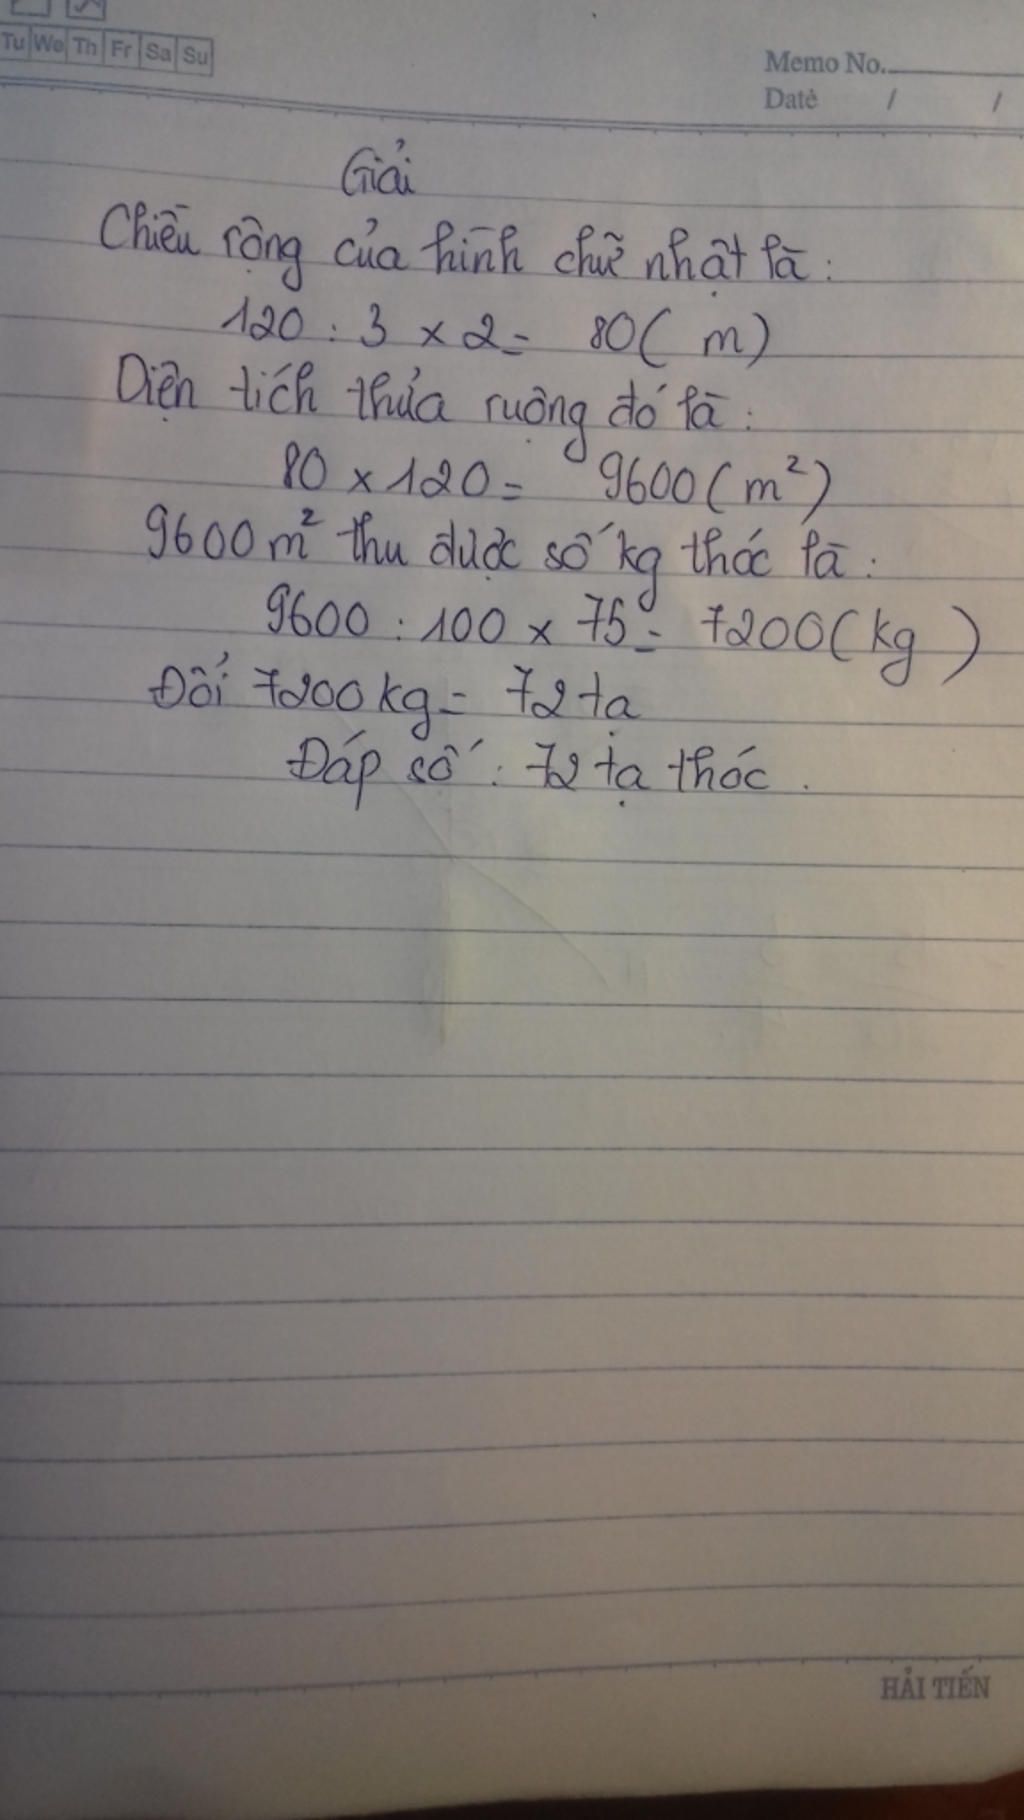 Tu We Th Fr Sa Su
Memo No.
Date / /
Giải
Chiều rộng của hình chữ nhật là :
120 : 3 x 2 = 80 ( m )
Diện tích thửa ruộng đó là :
80 x 120 = 9600 ( m² )
9600 m² thu được số kg thóc là :
9600 : 100 x 75 = 7200 ( kg )
Đổi 7200 kg = 72 tạ
Đáp số : 72 tạ thóc .
HẢI TIẾN